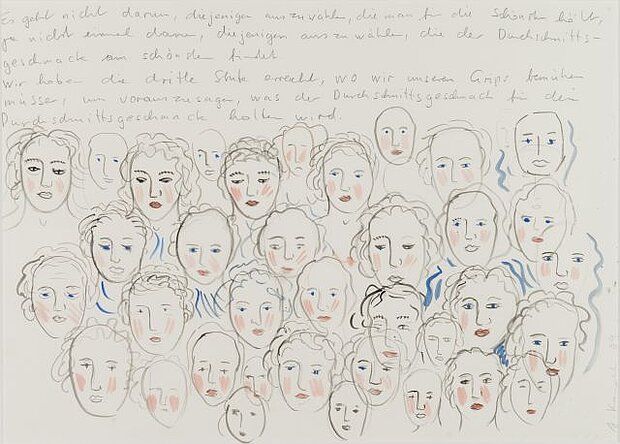 es geht nicht darum, diejenigen auszuwählen, die man für die Schönsten hält,
ja nicht einmal darum, diejenigen auszuwählen, die der Durchschnitts-
geschmack am schönsten findet.
Wir haben die dritte Stufe erreicht, wo wir unseren Grips bemühen
müssen, um vorauszusagen, was der Durchschnittsgeschmack für den
Durchschnittsgeschmack halten wird.